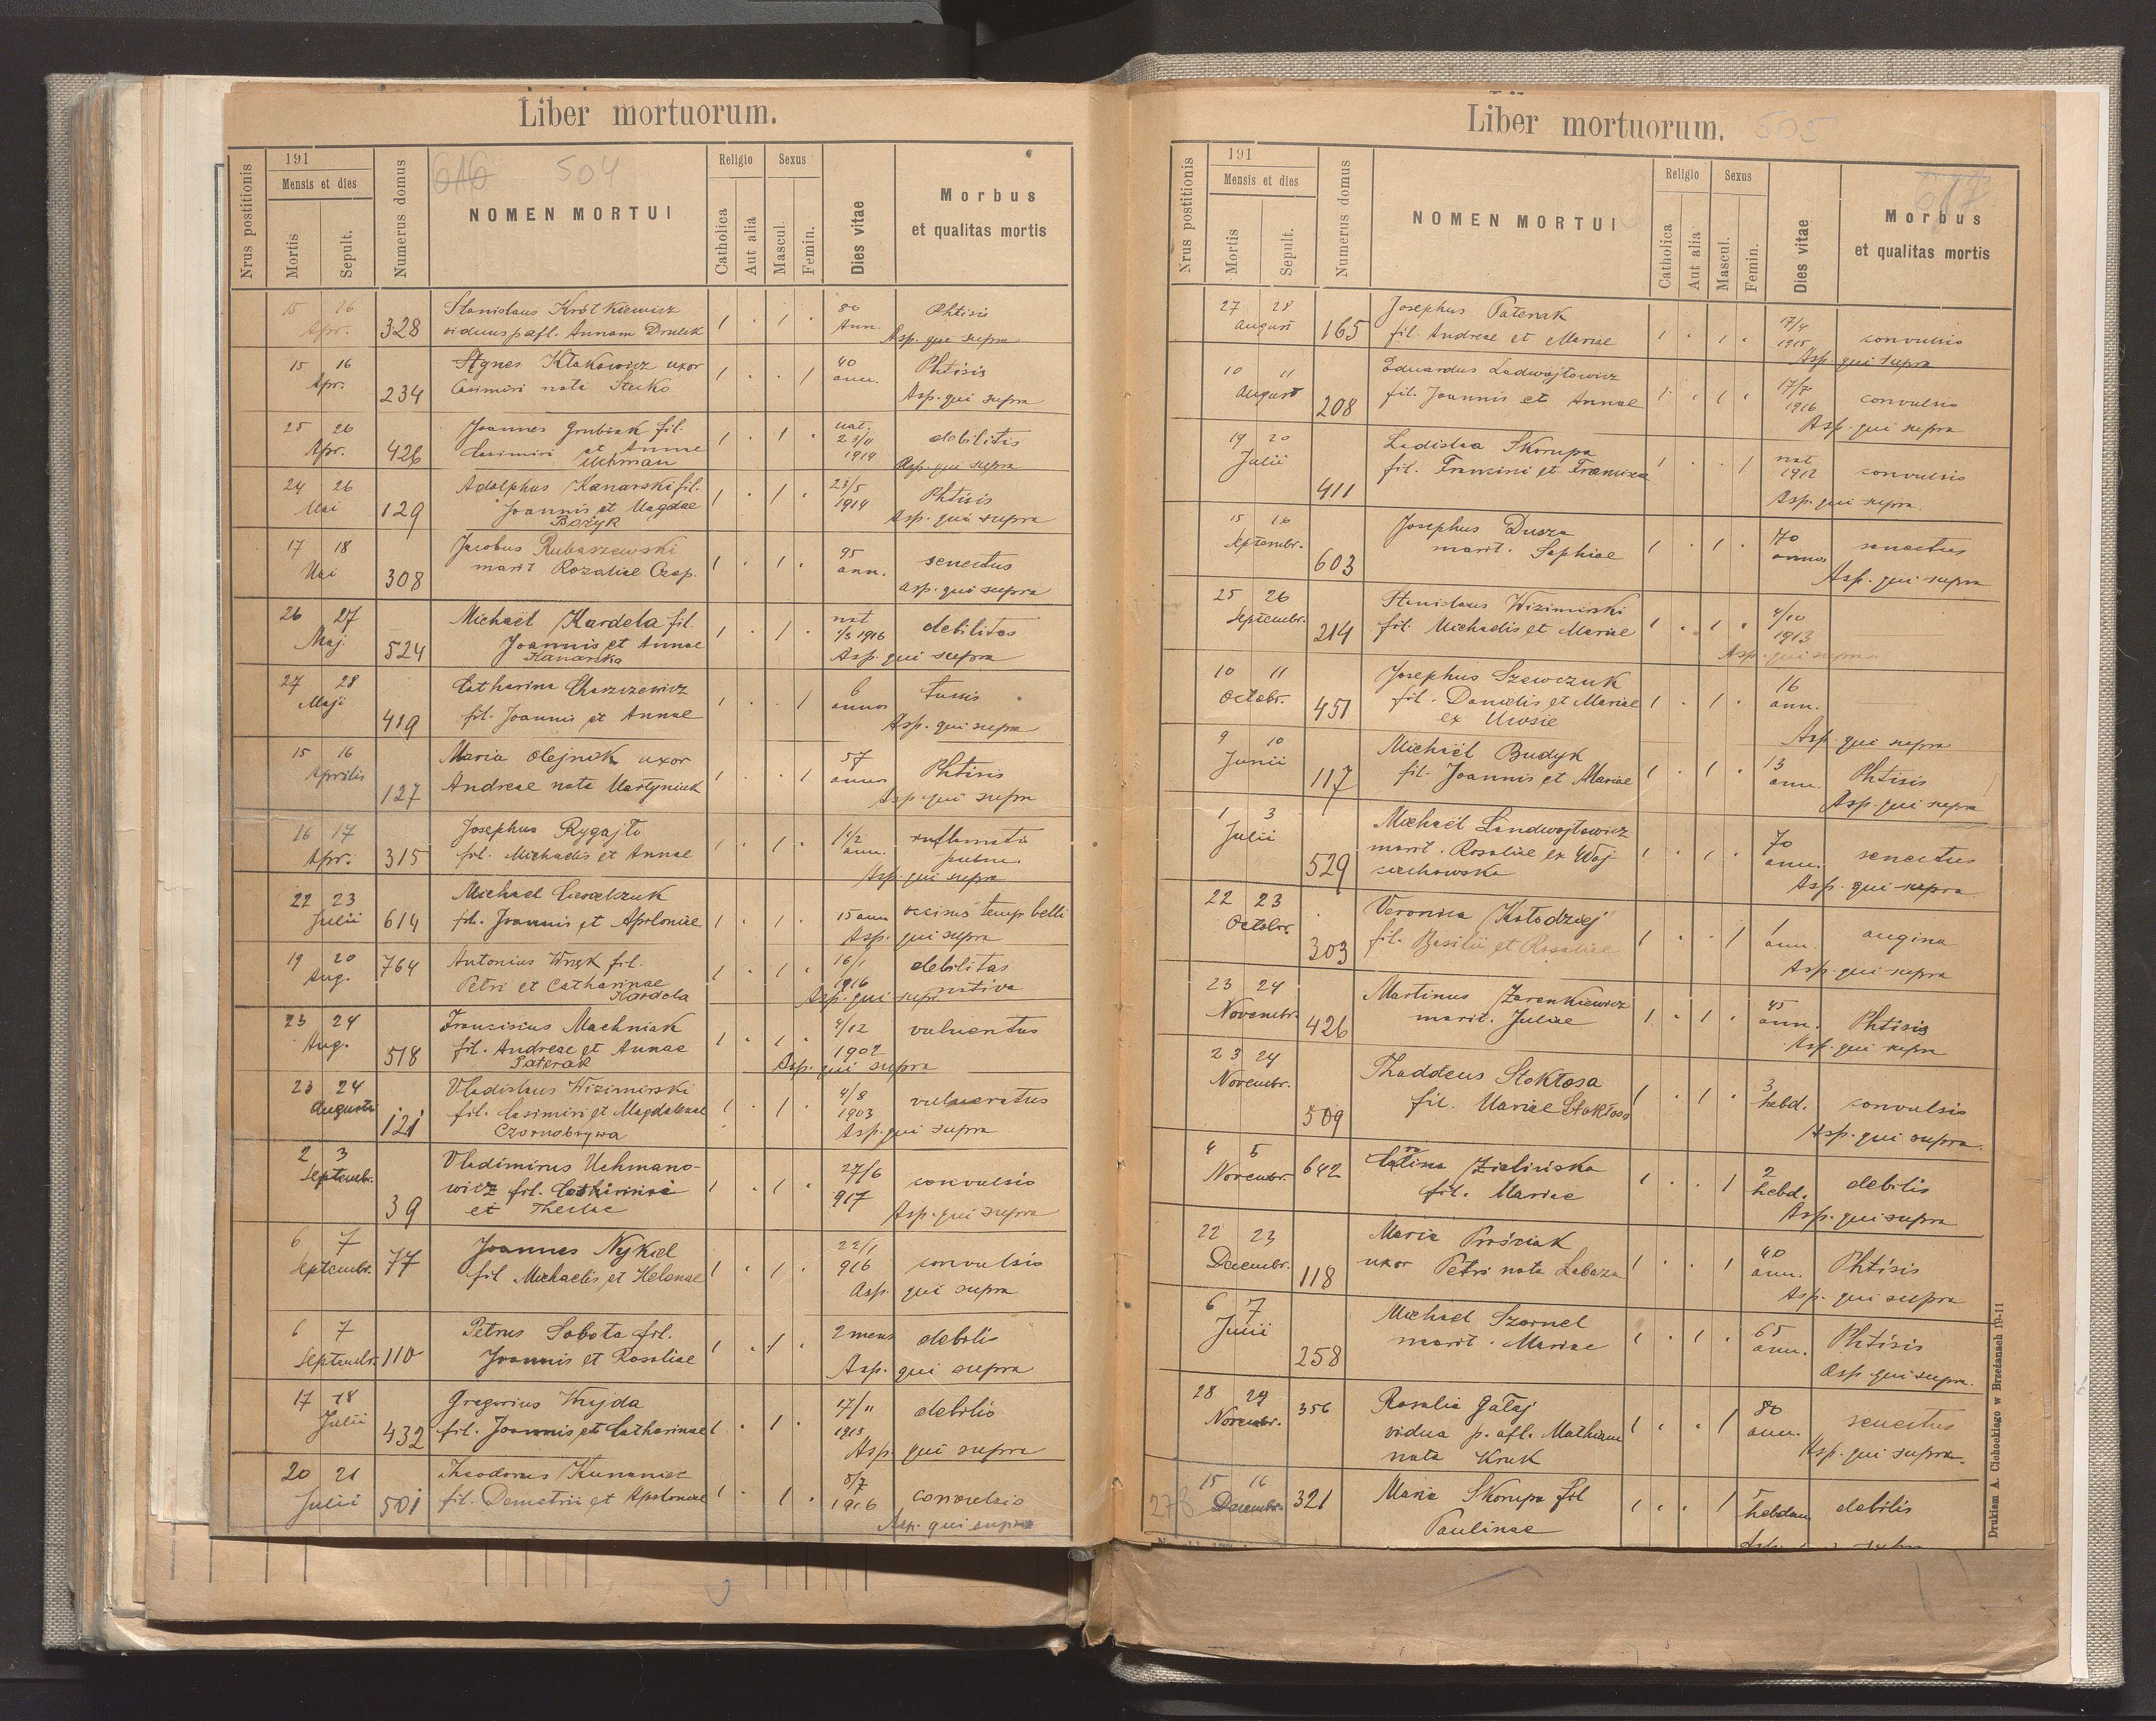 Liber mortuorum.
Nrus postitionis
191
Mensis et dies
Mortis
Sepult.
Numerus domus
616 504
NOMEN MORTUI
Religio
Catholica
Aut alia
Sexus
Mascul.
Femin.
Dies vitae
Morbus
et qualitas mortis
15 16 Stanislaus Królikiewicz 80 Phtisis
Apr. 328 viduus p. afl. Annam Drulik 1 . 1 . Ann.
Asp. qui supra
15 16 Agnes Kłakowicz uxor 40 Phtisis
Apr. 234 Casimiri nata Stecko 1 . . 1 ann.
Asp. qui supra
25 26 Joannes Grubiak fil. nat.
Apr. 426 Casimiri et Annae 1 . 1 . 23/11 debilitis
Uchman 1914
Asp. qui supra
24 26 Adolphus Kanarski fil. 23/5
Mai 129 Joannis et Magdae 1 . 1 . 1914 Phtisis
Bożyk Asp. qui supra
17 18 Jacobus Rubaszewski 95
Mai 308 marit Rozaliae Czop. 1 . 1 . ann. senectus
Asp. qui supra
26 27 Michaël Kardela fil. nat
Maj. 524 Joannis et Annae 1 . 1 . 1/3 1916 debilitas
Kanarska Asp. qui supra
27 28 Catharina Charczewicz 6 tussis
Maji 419 fil. Joannis et Annae 1 . . 1 annos
Asp. qui supra
15 16 Maria Olejnik uxor 57
Aprilis 127 Andreae nata Martyniuk 1 . . 1 annos Phtisis
Asp. qui supra
16 17 Josephus Rygajło 1 1/2
Apr. 315 fil. Michaelis et Annae 1 . 1 . ann. inflamatio
pulm.
Asp. qui supra
22 23 Michael
Julii 614 fil. Joannis et Apoloniae 1 . 1 . 15 ann occisus temp. belli
Asp. qui supra
19 20 764 Antonius Wnęk fil. 16/1
Aug. Petri et Catharinae 1 . 1 . 1916 debilitas
Kardela nativa
Asp. qui supr.
23 24 Franciscus Machniak 4/12
Aug. 518 fil. Andreae et Annae 1 . 1 . 1902 vulneratus
Paterak Asp. qui supra
23 24 Vladislaus Wizimirski 4/8
Augusti 121 fil. Casimiri et Magdalenae 1 . 1 . 1903 vulneratus
Czornobrywa Asp. qui supra
2 3 Vladimirus Uchmano-
Septembr. wicz fil. Cashimiri 1 . 1 . 27/6 convulsio
39 et Theclae 917
Asp. qui supra
6 7 Joannes Nykiel 22/1
Septembr. 77 fil Michaelis et Helenae 1 . 1 . 916 convulsio
Asp. qui supra
6 7 Petrus Sobota fil. 2 mens debilis
Septembr. 110 Joannis et Rosaliae 1 . 1 .
Asp. qui supra
17 18 Gregorius Kujda 17/11
Julii 432 fil. Joannis et Catharinae 1 . 1 . 1915 debilis
Asp. qui supra
20 21 Theodorus Kunaniec 8/7
Julii 501 fil. Demetrii et Apoloniae 1 . 1 . 1916 convulsio
Asp. qui supra
Liber mortuorum. 505
Nrus postitionis
191
Mensis et dies
Mortis
Sepult.
Numerus domus
NOMEN MORTUI
Religio
Catholica
Aut alia
Sexus
Mascul.
Femin.
Dies vitae
617
Morbus
et qualitas mortis
27 28 Josephus Paternak 17/4
August 165 fil. Andreae et Mariae 1 . 1 . 1915 convulsio
Asp. qui supra
10 11 Eduardus Ludwojtowicz 17/7
August 208 fil. Joannis et Annae 1 . 1 . 1916 convulsio
Asp. qui supra
19 20 Ladislaa Skorupa nat
Julii 411 fil. Francisci et Francisca 1 . . 1 1912 convulsio
Asp. qui supra
15 16 Josephus Dusza 70
Septembr. 603 marit. Sophiae 1 . 1 . annos senectus
Asp. qui supra
25 26 Stanislaus Wizimirski 4/10
Septembr. 214 fil. Michaelis et Mariae 1 . 1 . 1913
Asp. qui supra
10 11 Josephus Szewczuk 16
Octobr. 451 fil. Danielis et Mariae 1 . 1 . ann.
ex Urosie
Asp. qui supra
9 10 Michaël Budyk 13
Junii 117 fil. Joannis et Mariae 1 . 1 . ann. Phtisis
Asp. qui supra
1 3 Michaël Landwojtowicz 70
Julii marit. Rosaliae ex Woj- 1 . 1 . ann. senectus
529 ciechowska
Asp. qui supra
22 23 Veronica Kołodziej 1
Octobr. 303 fil. Basilii et Rosaliae 1 . . 1 ann. angina
Asp. qui supra
23 24 Martinus Zarenkiewicz 45
Novembr. 426 marit. Juliae 1 . 1 . ann. Phtisis
Asp. qui supra
23 24 Thaddeus Stokłosa 3
Novembr. 509 fil. Mariae Stokłosa 1 . 1 . hebd. convulsio
Asp. qui supra
4 5 Zielińska 2
Novembr. 642 fil. Mariae 1 . . 1 hebd. debilis
Asp. qui supra
22 23 Maria Prośniak 40
Decembr. 118 uxor Petri nata Łabaza 1 . . 1 ann. Phtisis
Asp. qui supra
6 7 Michael Szornel 65
Junii 258 marit. Mariae 1 . 1 . ann. Phtisis
Asp. qui supra.
28 29 356 Rosalia Gałaj 80
Novembr. vidua p. afl. Mathaeum 1 . . 1 ann. senectus
nata Kruk Asp. qui supra.
15 16 Maria Skorupa fil
278 Decembr. 321 Paulinae 1 . . 1 hebdom debilis
Drukiem A. Cichockiego w Brzeżanach 19-11